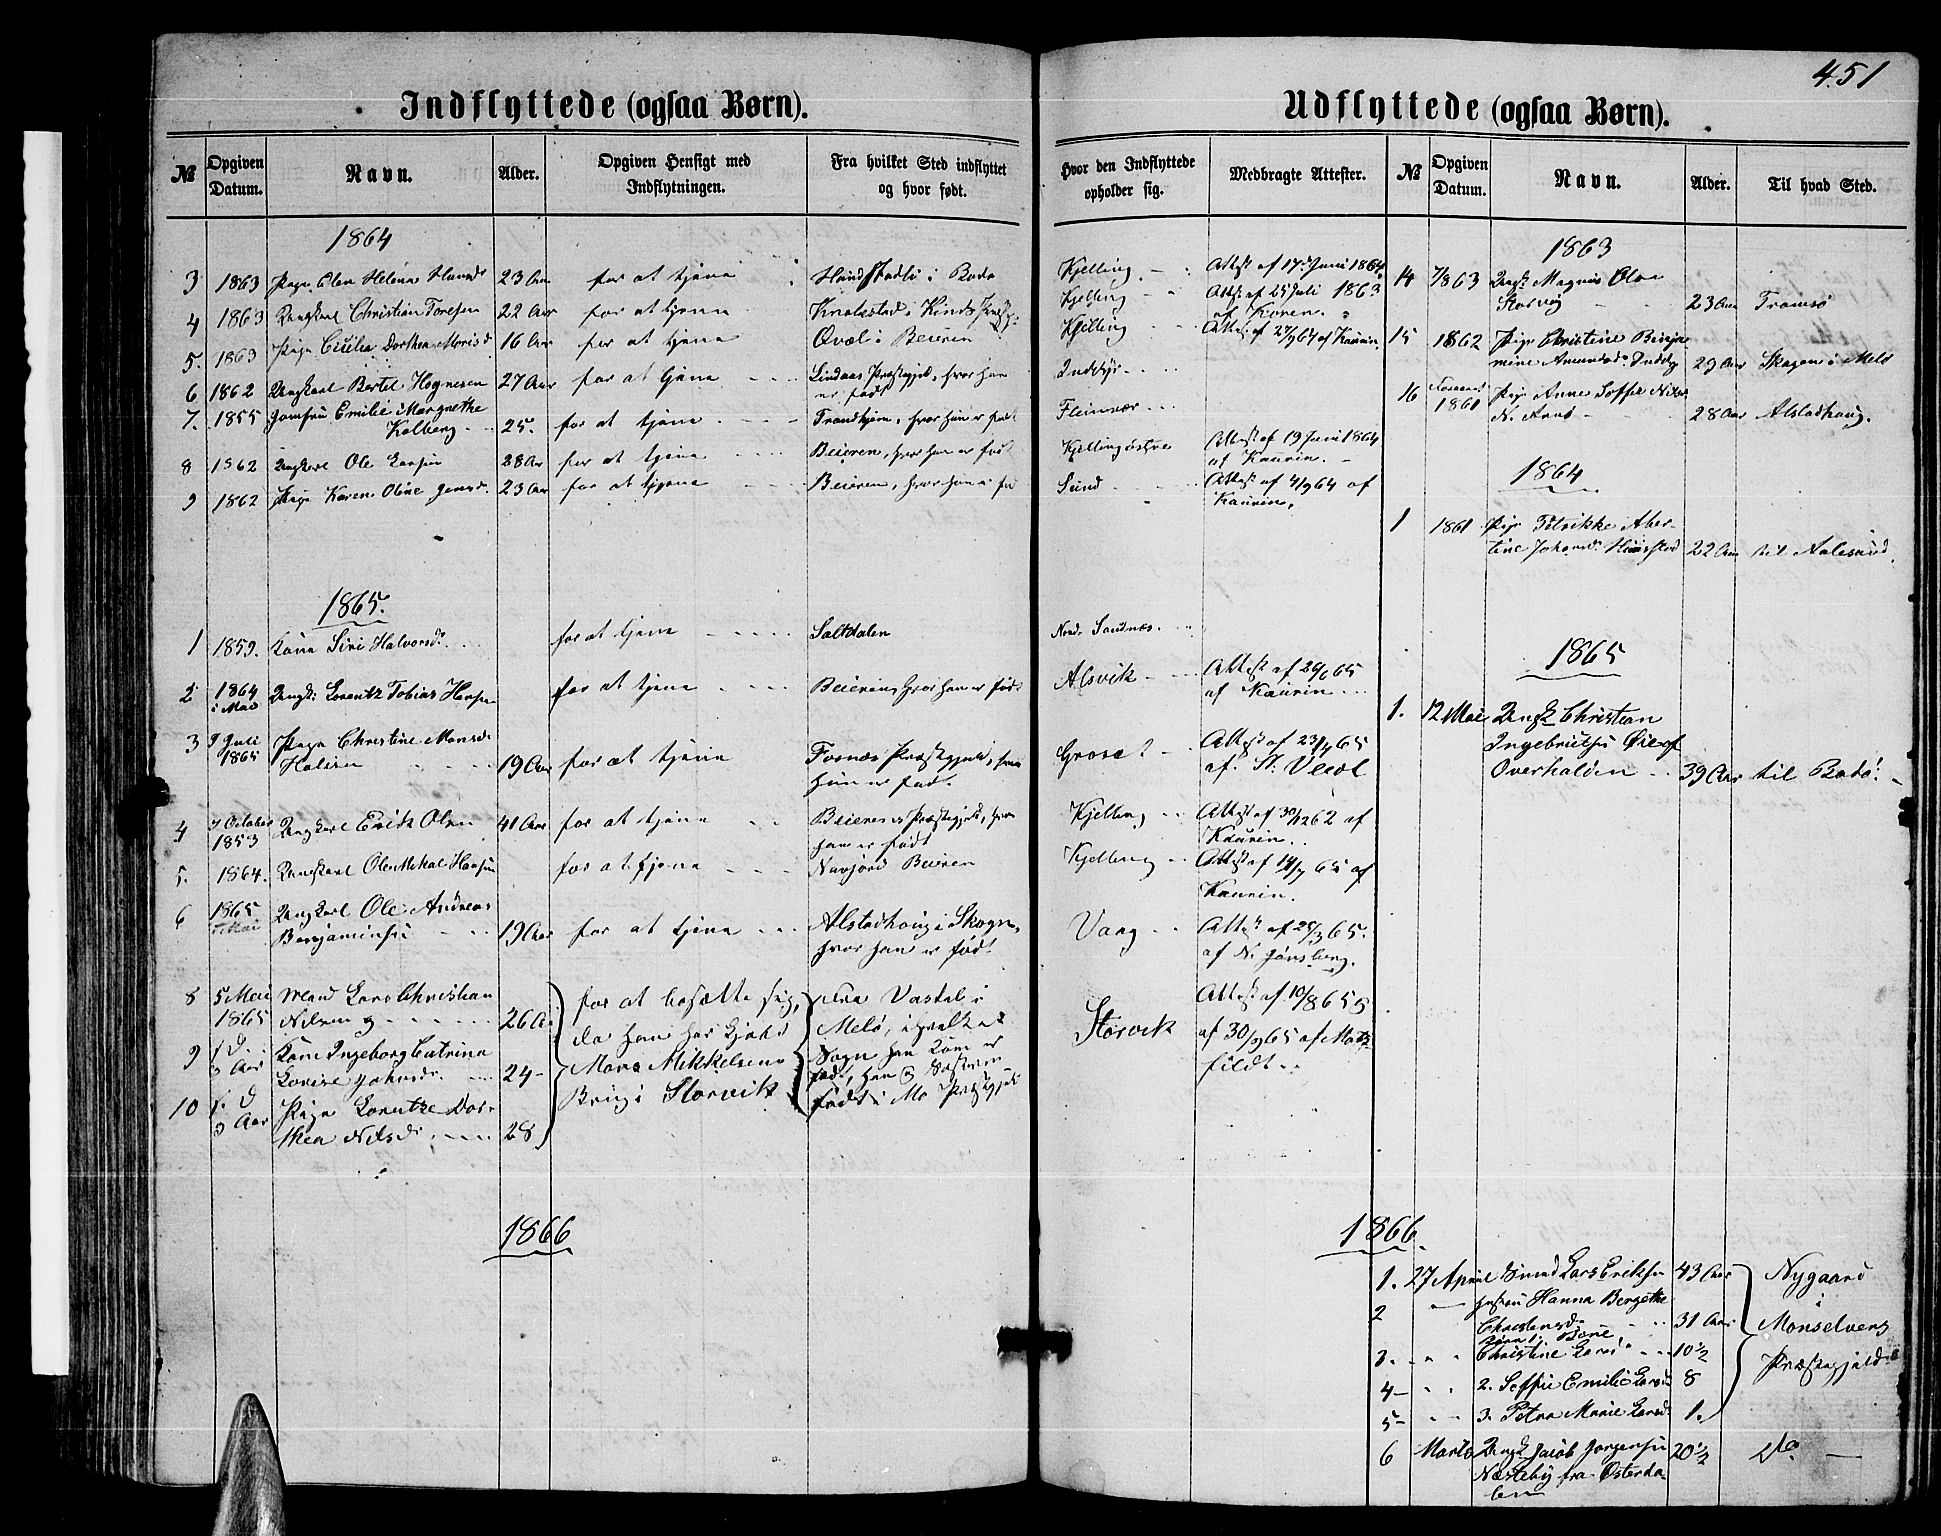 451
Indflyttede (ogsaa Børn).
№ Opgiven Datum. Navn. Alder. Opgiven Hensigt med Indflytningen. Fra hvilket Sted indflyttet og hvor født.
1864
3 1863 Pige Elen Helena Hansd 23 Aar for at tjene i Bodø
4 1863 Ungkarl Christian Toresen 22 Aar for at tjene
5. 1863 Pige Cicilia Dorthea Morisd 16 Aar for at tjene i Beieren
6 1862 Ungkarl Bertel Hognesen 27 Aar for at tjene Lindaas Præstegjeld, hvor han
er født
7. 1855 Jomfru Emilie Margrethe
Kolberg 25. for at tjene Trondhjem, hvor hun er født
8 1862 Ungkarl Ole Larsen 28 Aar for at tjene Beieren, hvor han er født
9 1862 Pige Karen Oline Jensd. 23 Aar for at tjene Beieren, hvor hun er fød
1865.
1 1859. Kone Siri Halvorsd. for at tjene Saltdalen
2 1864
i Mai Ungk: Lorentz Tobias Hansen for at tjene Beieren, hvor han er født
3 9 Juli
1865 Pige Christine Monsd.
19 Aar for at tjene Fosnæs Præstegjeld, hvor
hun er født.
4 7 October
1853 Ungkarl Erik Olsen 41 Aar for at tjene Beierens Præstegjeld, hvor
han er født
5. 1864. Ungkarl Ole Mikal Hansen for at tjene Navjord Beieren
6 1865
Mai Ungkarl Ole Andreas
Benjaminsen 19 Aar for at tjene Alstadhoug i Skogn,
hvor han er født
8 5 Mai
1865 Mand Lars Christian
Nilsen og 26 A for at bosætte sig,
da han har kjøbt
Mons Mikkelsens
Brug i Storvik fra i
Melø, i hvilket
Sogn han Kone er
født, han og Søsteren
født i Mo Præstegjeld
9 i D
o Aar Kone Ingeborg Catrina
Lovise Johnsd. 24-
10 i D
o Aar Pige Lorentze Dor-
thea Nilsd. 28
1866
Udflyttede (ogsaa Børn).
Hvor den Indflyttede opholder sig. Medbragte Attester. № Opgiven Datum. Navn. Alder. Til hvad Sted.
Kjelling Attest af 17de Juni 1864
Kjelling Attest af 25 Juli 1863
Kjelling Attest af 27/9 64 af Kaurin
Inddyr
Fleinvær
Kjelling østre Attest af 19 Juni 1864
af Kaurin.
Sund Attest af 4/9 64 af
Kaurin.
Nord. Sandnæs.
Alsvik Attest af 29/6 65
af Kaurin
Groset Attest af 23/4 65
af
Kjelling Attest af 30/12 62 af
Kaurin.
Kjelling Attest af 14/7 65 af
Kaurin.
Vaag Attest af 28/3 65.
af N. Jønsberg.
Storvik Attest af 10/8 65 og
af 30/9 65 af
1863
14 7/863 Ungk Magnus Olsen
Storvig 23 Aar Tromsø
15 1862 Pige Christine Benja-
mine Amundsd. Inddyr 29 Aar Skagen i Melø
16 1861 Pige Anne Soffie Nilsd
N. Arnø 28 Aar Alstadhoug.
1864
1 1861 Pige Petrikke Alber-
tine Johansd. 22 Aar til Aalesund.
1865
1. 12 Mai Ungk Christian
Ingebrigtsen Øie af
Overhalden 39 Aar til Bodø.
1866.
1. 27 April Mand Lars Eriksen 43 Aar Nygaard
i
Monselvens
Præstegjeld
2 Hustru Hanna Bergithe
Christensd. 31 Aar
Børn
3. Christine Larsd 10 1/2
4- 2. Soffie Emilie Larsd 8
5- 3. Petra Marie Larsd 1.
6 Marts Ungk Jacob Jorgensen
Næsteby fra Østerda-
len 20 1/2 Do